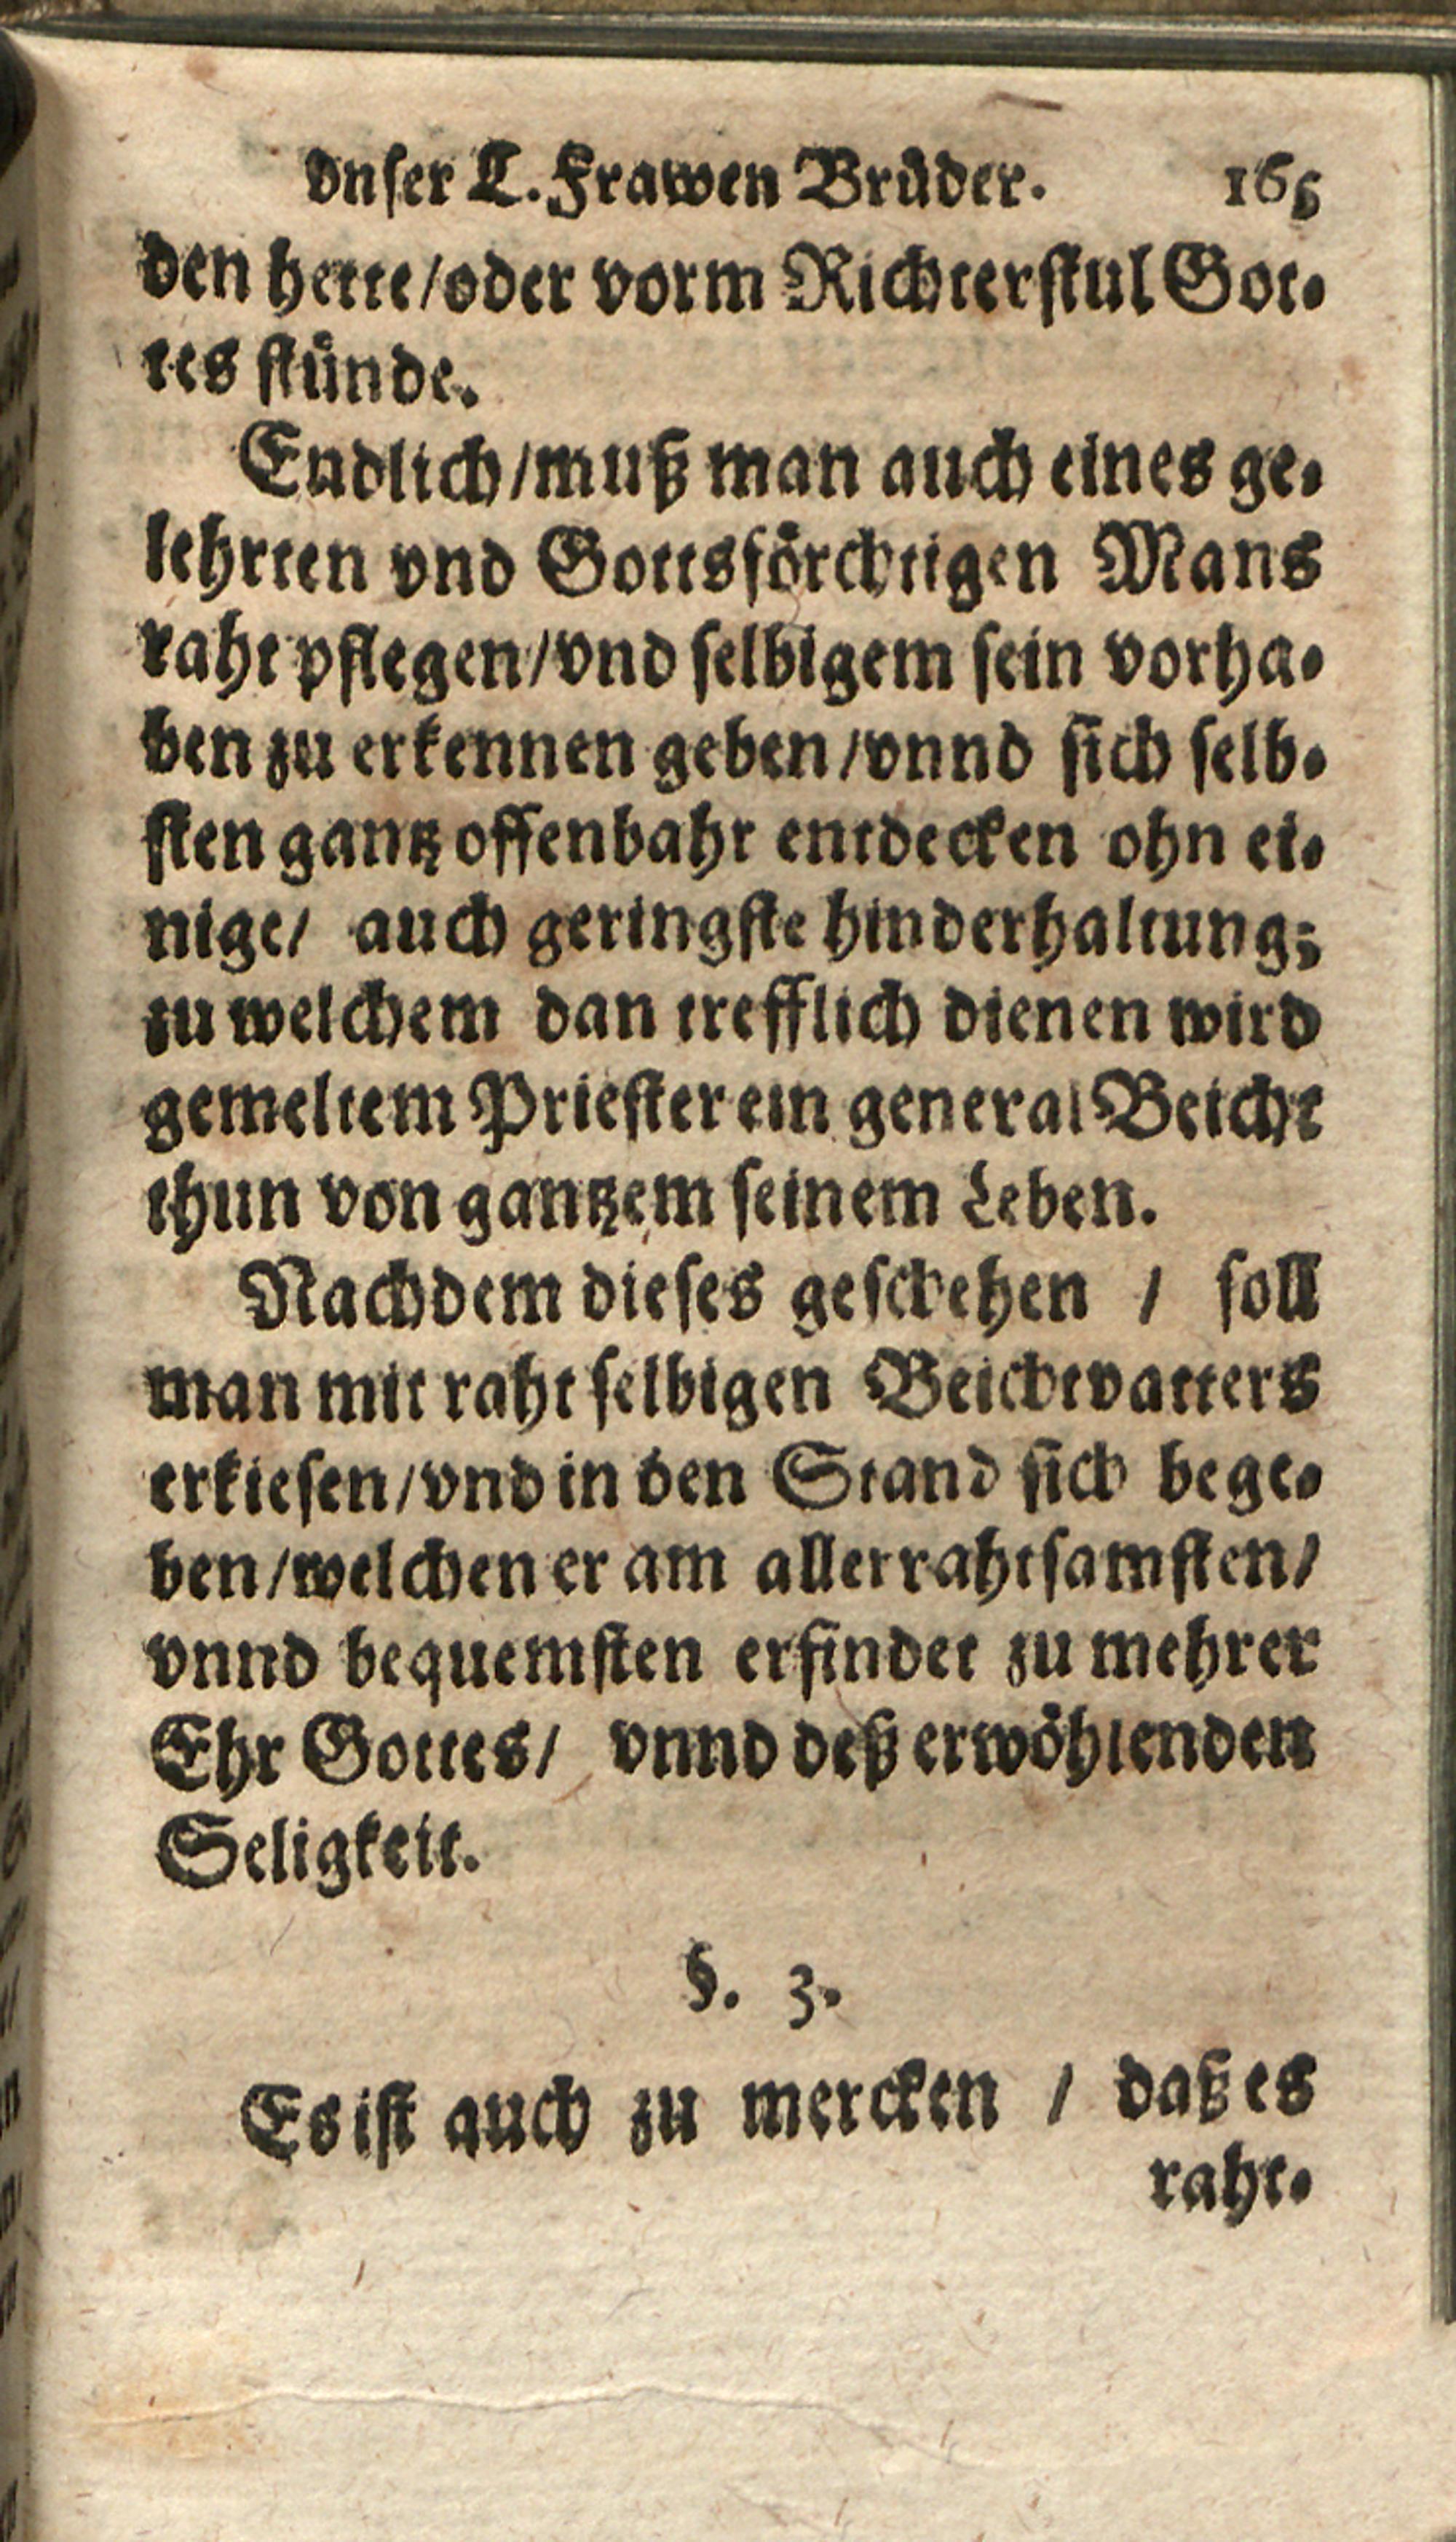 vnser L. Frawen Brüder. 165
den hette/oder vorm Richterstul Got-
tes stünde.
Endlich/muß man auch eines ge-
lehrten vnd Gottsförchtigen Mans
raht pflegen/vnd selbigem sein vorha-
ben zu erkennen geben/vnnd sich selb-
sten gantz offenbahr entdecken ohn ei-
nige/ auch geringste hinderhaltung;
zu welchem dan trefflich dienen wird
gemeltem Priester ein general Beicht
thun von gantzem seinem Leben.
Nachdem dieses geschehen / soll
man mit raht selbigen Beichtvatters
erkiesen/vnd in den Stand sich bege-
ben/welchen er am allerrahtsamsten/
vnnd bequemsten erfindet zu mehrer
Ehr Gottes/ vnnd deß erwöhlenden
Seligkeit.
§. 3.
Es ist auch zu mercken / daß es
raht-